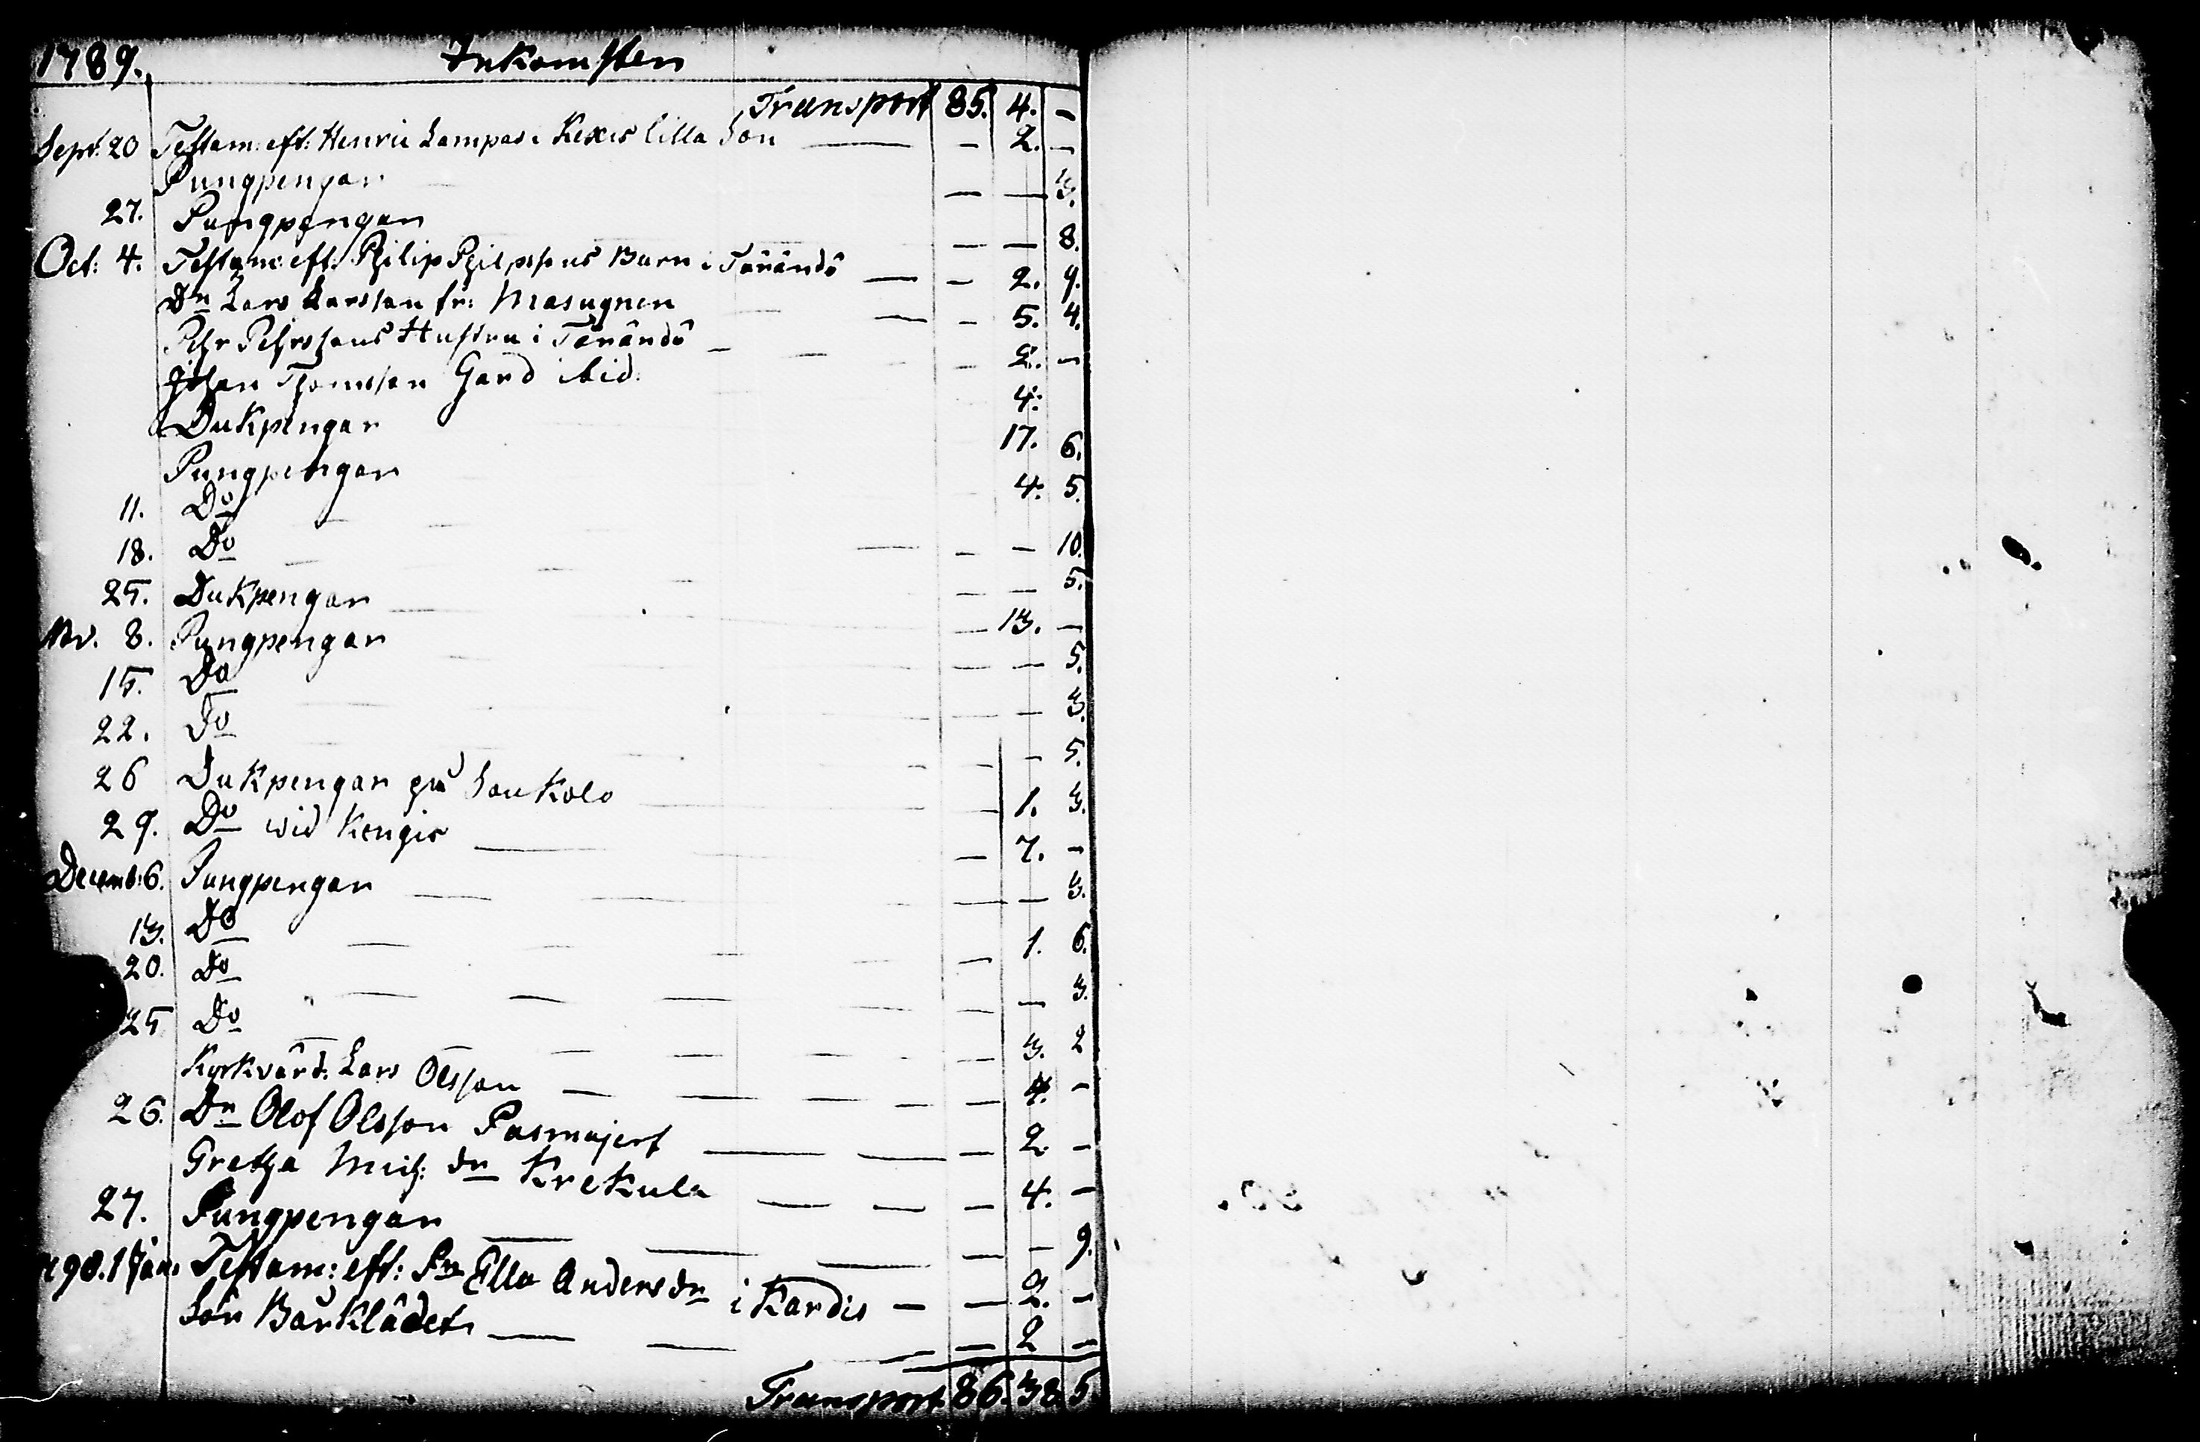 1789. Inkomsten
Transport 85. 4. –
Sept: 20 Testam: eft: Henric Lampas i Kexis lilla Son — – 2. –
Pungpengar — — 3.
27. Pungpengar — — 8.
Oct: 4. Testam: eft: Philip Philipssons Barn i Tärändö — – 2. 9.
Dn Lars Larsson fr: Masugnen — – 5. 4.
Pehr Pehrssons Hustru i Tärändö – — 2. –
Johan Thomsson Gard ibid: 4:
Dukpengar 17. 6.
Pungpengar 4: 5.
11. Do — – – 10.
18. Do – – 5.
25. Dukpengar — 13. –
Nov. 8. Pungpengar — — 5.
15. Do — – 3.
22. Do — – 5.
26 Dukpengar på Soukolo — 1. 3.
29. Do wid Kengis — – 7. –
Decemb: 6. Pungpengar — — 3.
13. Do — – 1. 6.
20. Do — – 3.
25 Do — – 3. 2
Kyrkvärd: Lars Olsson — – 4. –
26. Dn Olof Olsson Pasmajerf — – 2. –
Gretha Mich: dn Krekula — – 4. –
27. Pungpengar — – – 9.
1790. 1 Jan: Testam: eft: Ella Anders dn i Kardis – — 2. –
för Bårklädet — — 2 –
Transport 86. 38. 5